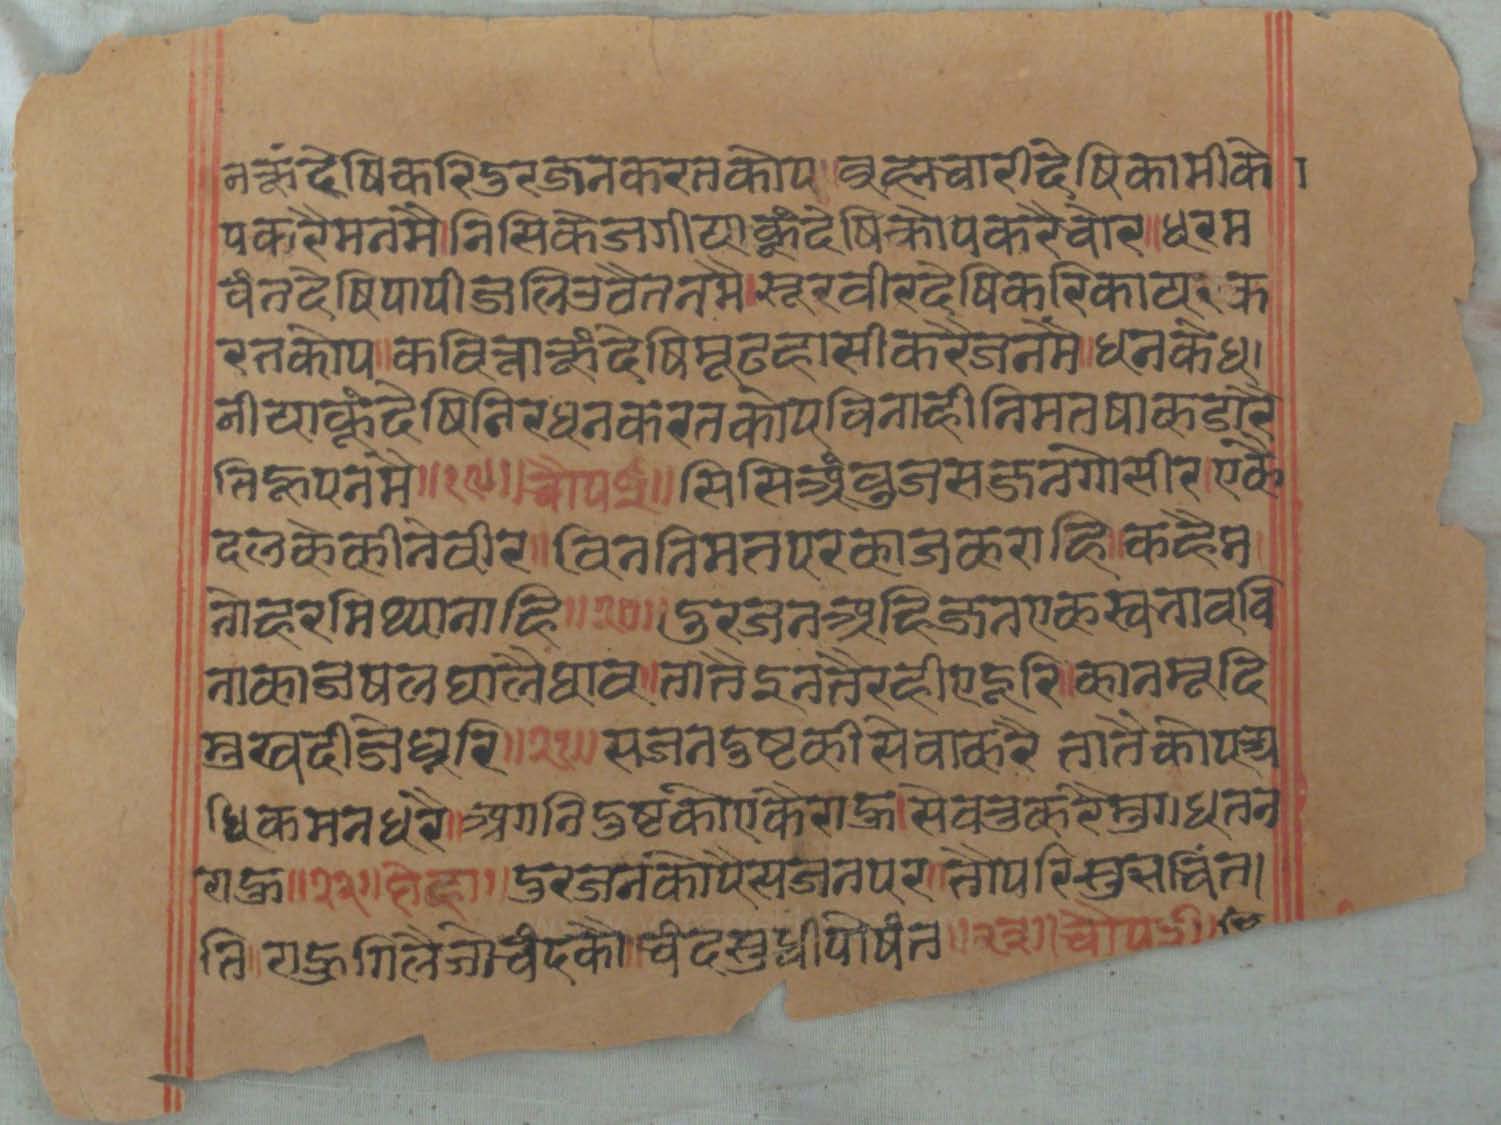 नकूं देषि करि दुरजन करत कोप ॥ ब्रह्मचारी देषि कामी को
प करै मन मैं ॥ निसि कै जगीया कूं देषि कोप करै चोर ॥ धरम
वंत देषि पापी जलि उठै तन मै ॥ सूरवीर देषि करि कायर क
रत कोप ॥ कविता कूं देषि मूढ हासी करै जन मैं ॥ धन के ध
नीया कूं देषि निरधन करत कोप विना ही निमत षाक डारै
तिहू पन मै ॥१९॥ चौपई ॥ सिसि अंबुज सजन गोसीर । एकै
दल के कीने वीर ॥ विन निमत पर काज कराहि ॥ कहै म
नोहर मिथ्या नाहि ॥२०॥ दुरजन अहि जन एक स्वभाव वि
ना काज षल घालै घाव ॥ तातै इन तै रहीए दूरि ॥ कान मूदि
मुख दीजे धूरि ॥२१॥ सजन दुष्ट की सेवा करै तातै कोप अ
धिक मन धरै ॥ अगनि दुष्ट को एकै राह । सेवतु करै मुगध तन
दाह ॥२२॥ दोहा ॥ दुरजन कोपै सजन पर ॥ तौ परि सुसचिंत
ति ॥ राहु गिलै जो चंद कौ ॥ चंद सुधी पोषंत ॥२३॥ चौपई ॥